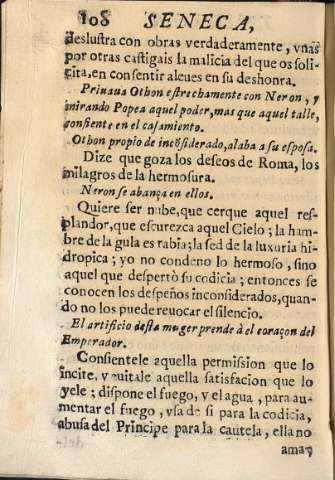 108 SENECA,
deslustra con obras verdaderamente, vnas
por otras castigais la malicia del que os soli-
cita, en consentir aleues en su deshonra.
Priuaua Othon estrechamente con Neron, y
mirando Popea aquel poder, mas que aquel talle,
consiente en el casamiento.
Othon propio de incōsiderado, alaba a su esposa.
Dize que goza los deseos de Roma, los
milagros de la hermosura.
Neron se abança en ellos.
Quiere ser nube, que cerque aquel res-
plandor, que escurezca aquel Cielo; la ham-
bre de la gula es rabia; la sed de la luxuria hi-
dropica; yo no condeno lo hermoso, sino
aquel que despertò su codicia; entonces se
conocen los despeños inconsiderados, quan-
do no los puede reuocar el silencio.
El artificio desta muger prende à el coraçon del
Emperador.
Consientele aquella permission que lo
incite, y quitale aquella satisfacion que lo
yele; dispone el fuego, y el agua, para au-
mentar el fuego, vsa de si para la codicia,
abusa del Principe para la cautela, ella no
ama,